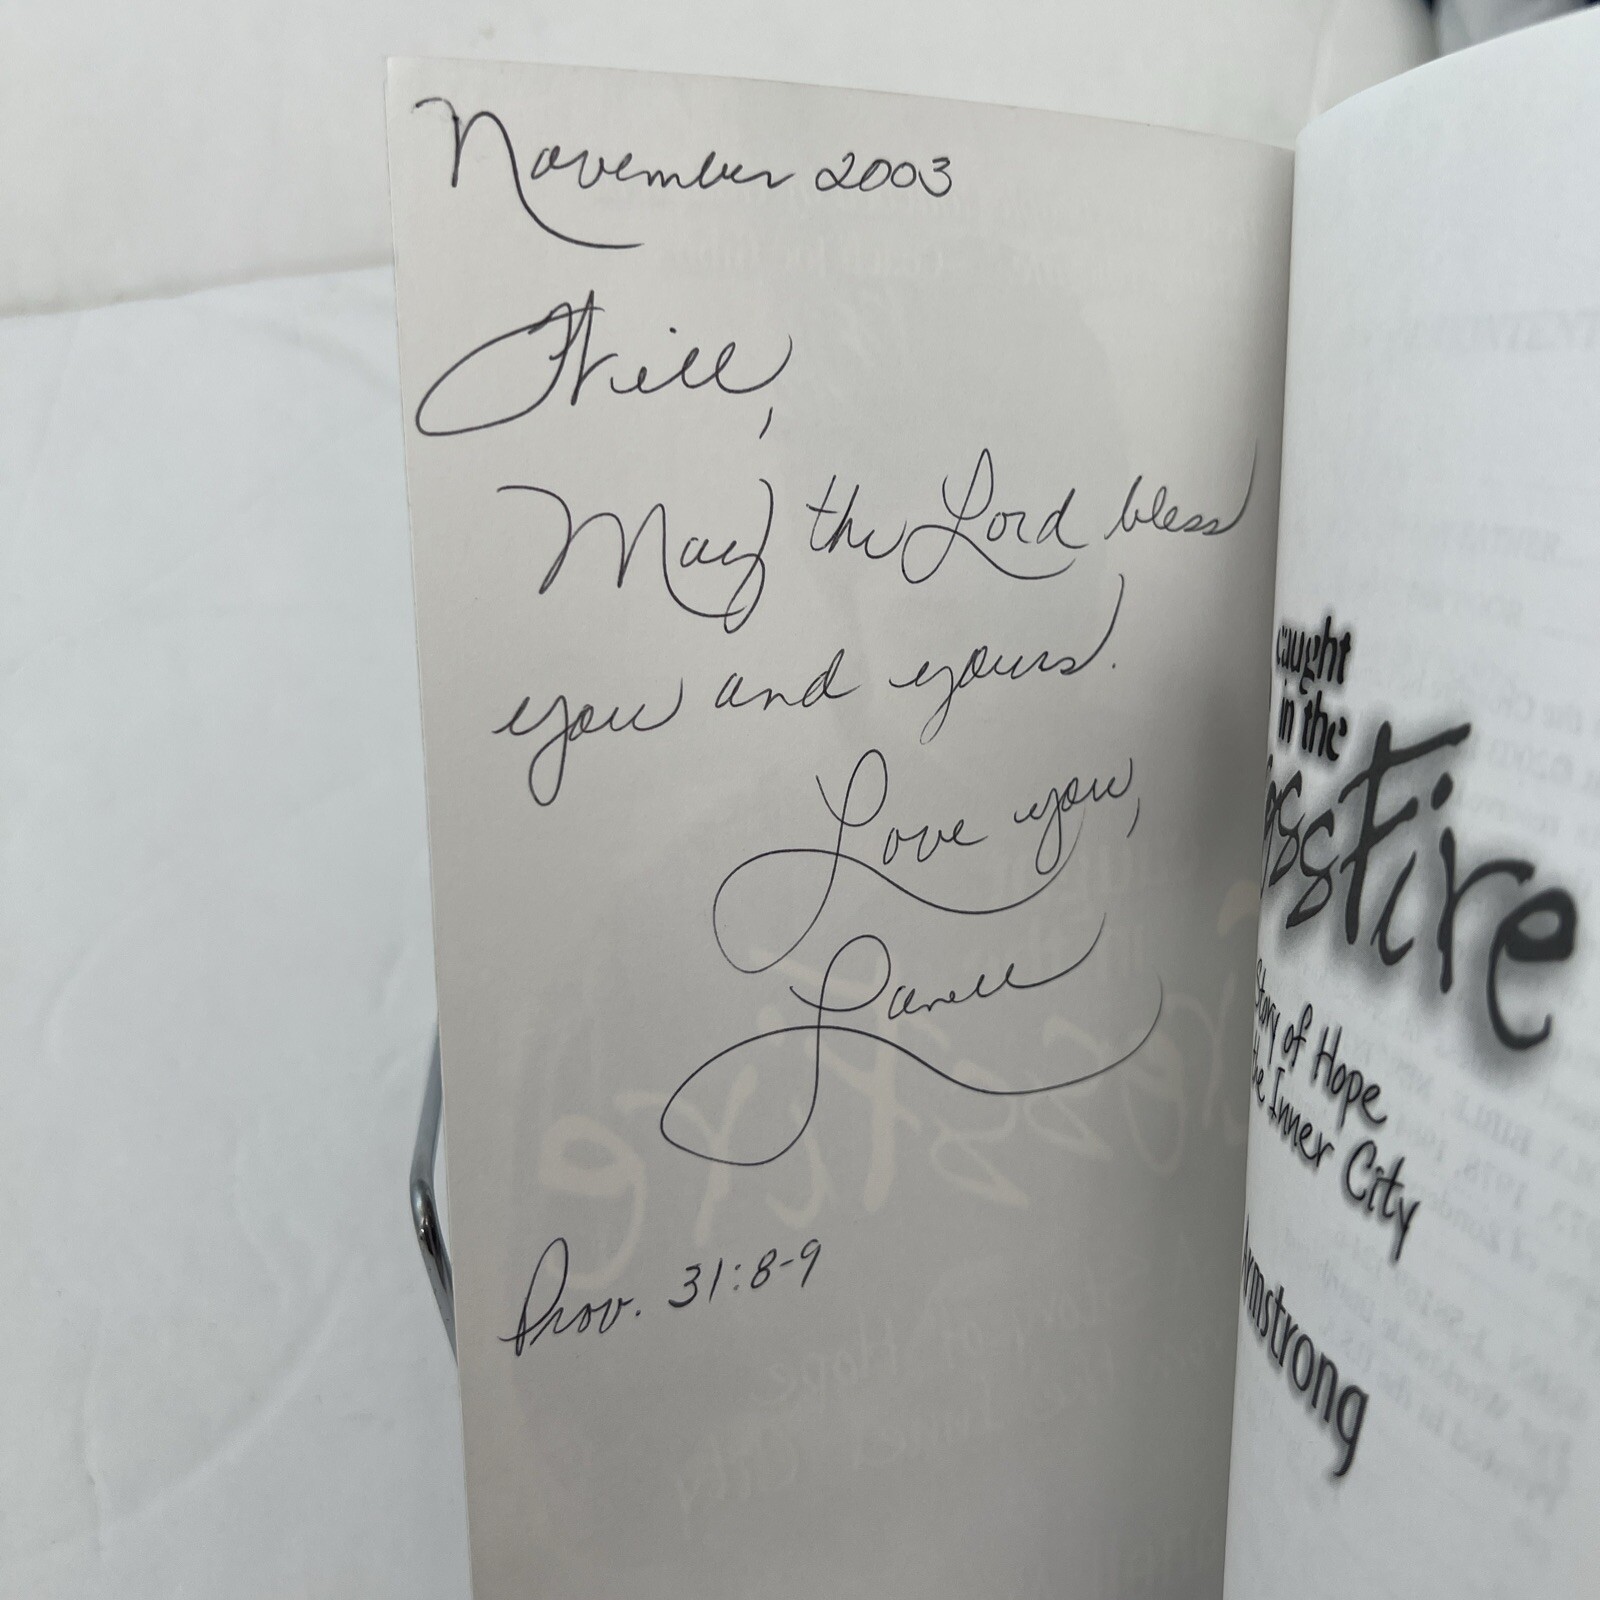 November 2003
Will,
May the Lord bless
you and yours.
Love you,
Lanell
Prov. 31:8-9
caught
in the
ossFire
Story of Hope
the Inner City
Armstrong